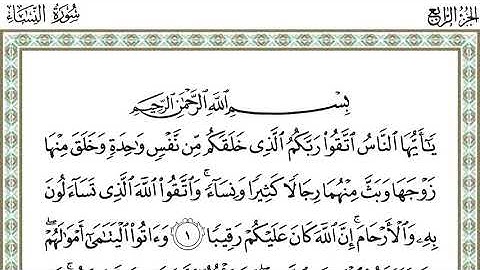 الجزء الرابع
سورة النساء
بِسْمِ اللَّهِ الرَّحْمَٰنِ الرَّحِيمِ
يَٰٓأَيُّهَا النَّاسُ اتَّقُوا۟ رَبَّكُمُ الَّذِى خَلَقَكُم مِّن نَّفْسٍ وَٰحِدَةٍ وَخَلَقَ مِنْهَا
زَوْجَهَا وَبَثَّ مِنْهُمَا رِجَالًا كَثِيرًا وَنِسَآءً ۚ وَاتَّقُوا۟ اللَّهَ الَّذِى تَسَآءَلُونَ
بِهِۦ وَالْأَرْحَامَ ۚ إِنَّ اللَّهَ كَانَ عَلَيْكُمْ رَقِيبًا ١ وَءَاتُوا۟ الْيَتَٰمَىٰٓ أَمْوَٰلَهُمْ ۖ